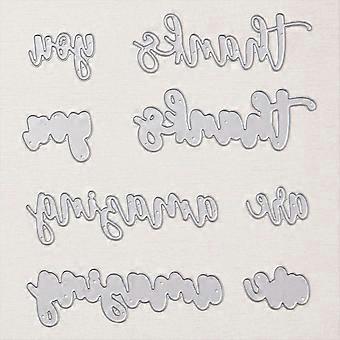 thanks you
thanks you
are amazing
are amazing